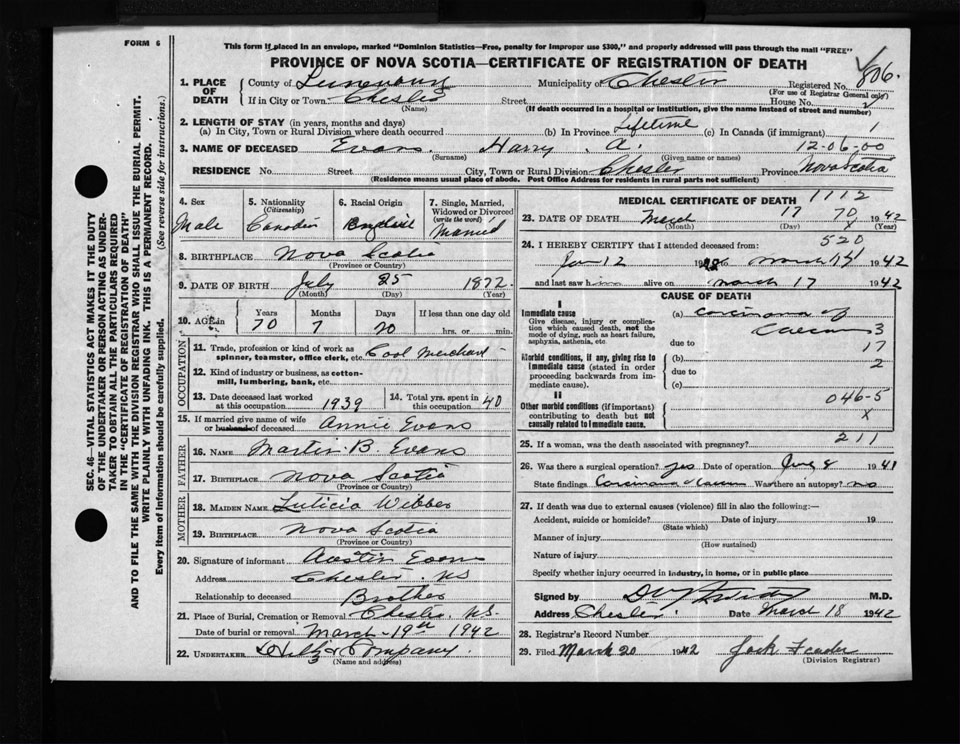 FORM 6
This form if placed in an envelope, marked "Dominion Statistics—Free, penalty for improper use $300," and properly addressed will pass through the mail "FREE"
PROVINCE OF NOVA SCOTIA—CERTIFICATE OF REGISTRATION OF DEATH
SEC. 46—VITAL STATISTICS ACT MAKES IT THE DUTY
OF THE UNDERTAKER OR PERSON ACTING AS UNDER-
TAKER TO OBTAIN ALL THE PARTICULARS REQUIRED
IN THE "CERTIFICATE OF REGISTRATION OF DEATH"
AND TO FILE THE SAME WITH THE DIVISION REGISTRAR WHO SHALL ISSUE THE BURIAL PERMIT.
WRITE PLAINLY WITH UNFADING INK. THIS IS A PERMANENT RECORD.
Every item of information should be carefully supplied. (See reverse side for instructions.)
1. PLACE OF DEATH County of Lunenburg Municipality of Chester Registered No. 806.
(For use of Registrar General only)
If in City or Town Chester Street House No.
(Name) (If death occurred in a hospital or institution, give the name instead of street and number)
2. LENGTH OF STAY (in years, months and days)
(a) In City, Town or Rural Division where death occurred (b) In Province Lifetime (c) In Canada (if immigrant) 1
3. NAME OF DECEASED Evans Harry A. 12-06-00
(Surname) (Given name or names)
RESIDENCE No. Street City, Town or Rural Division Chester Province Nova Scotia
(Residence means usual place of abode. Post Office Address for residents in rural parts not sufficient)
4. Sex Male
5. Nationality (Citizenship) Canadian
6. Racial Origin English
7. Single, Married, Widowed or Divorced (write the word) Married
8. BIRTHPLACE Nova Scotia
(Province or Country)
9. DATE OF BIRTH July 25 1872
(Month) (Day) (Year)
10. AGE in Years 70 Months 7 Days 20 If less than one day old
hrs. or min.
OCCUPATION
11. Trade, profession or kind of work as
spinner, teamster, office clerk, etc. Coal Merchant
12. Kind of industry or business, as cotton-
mill, lumbering, bank, etc.
13. Date deceased last worked at this occupation 1939 14. Total yrs. spent in this occupation 40
15. If married give name of wife or husband of deceased Annie Evans
FATHER
16. NAME Martin B. Evans
17. BIRTHPLACE Nova Scotia
(Province or Country)
MOTHER
18. MAIDEN NAME Luticia Webber
19. BIRTHPLACE Nova Scotia
(Province or Country)
20. Signature of informant Austin Evans
Address Chester, NS
Relationship to deceased Brother
21. Place of Burial, Cremation or Removal Chester, NS.
Date of burial or removal March 19th 1942
22. UNDERTAKER & Company
(Name and address)
MEDICAL CERTIFICATE OF DEATH 1112
23. DATE OF DEATH March 17 70 1942
(Month) (Day) X (Year)
24. I HEREBY CERTIFY that I attended deceased from: 520
Jan 12 19 to March 17 1942
and last saw him alive on March 17 1942
CAUSE OF DEATH
I
Immediate cause
Give disease, injury or complica-
tion which caused death, not the
mode of dying, such as heart failure,
asphyxia, asthenia, etc.
(a) Carcinoma of
Caecum 3
due to 17
Morbid conditions, if any, giving rise to
immediate cause (stated in order
proceeding backwards from im-
mediate cause).
(b) 2
due to
(c)
II
Other morbid conditions (if important)
contributing to death but not
causally related to immediate cause.
046-5
X
211
25. If a woman, was the death associated with pregnancy?
26. Was there a surgical operation? yes Date of operation 8 1941
State findings Carcinoma of Caecum Was there an autopsy? no
27. If death was due to external causes (violence) fill in also the following:—
Accident, suicide or homicide? Date of injury 19
(State which)
Manner of injury
(How sustained)
Nature of injury
Specify whether injury occurred in industry, in home, or in public place
Signed by M.D.
Address Chester. Date March 18 1942
28. Registrar's Record Number
29. Filed March 20 1942 Jack
(Division Registrar)